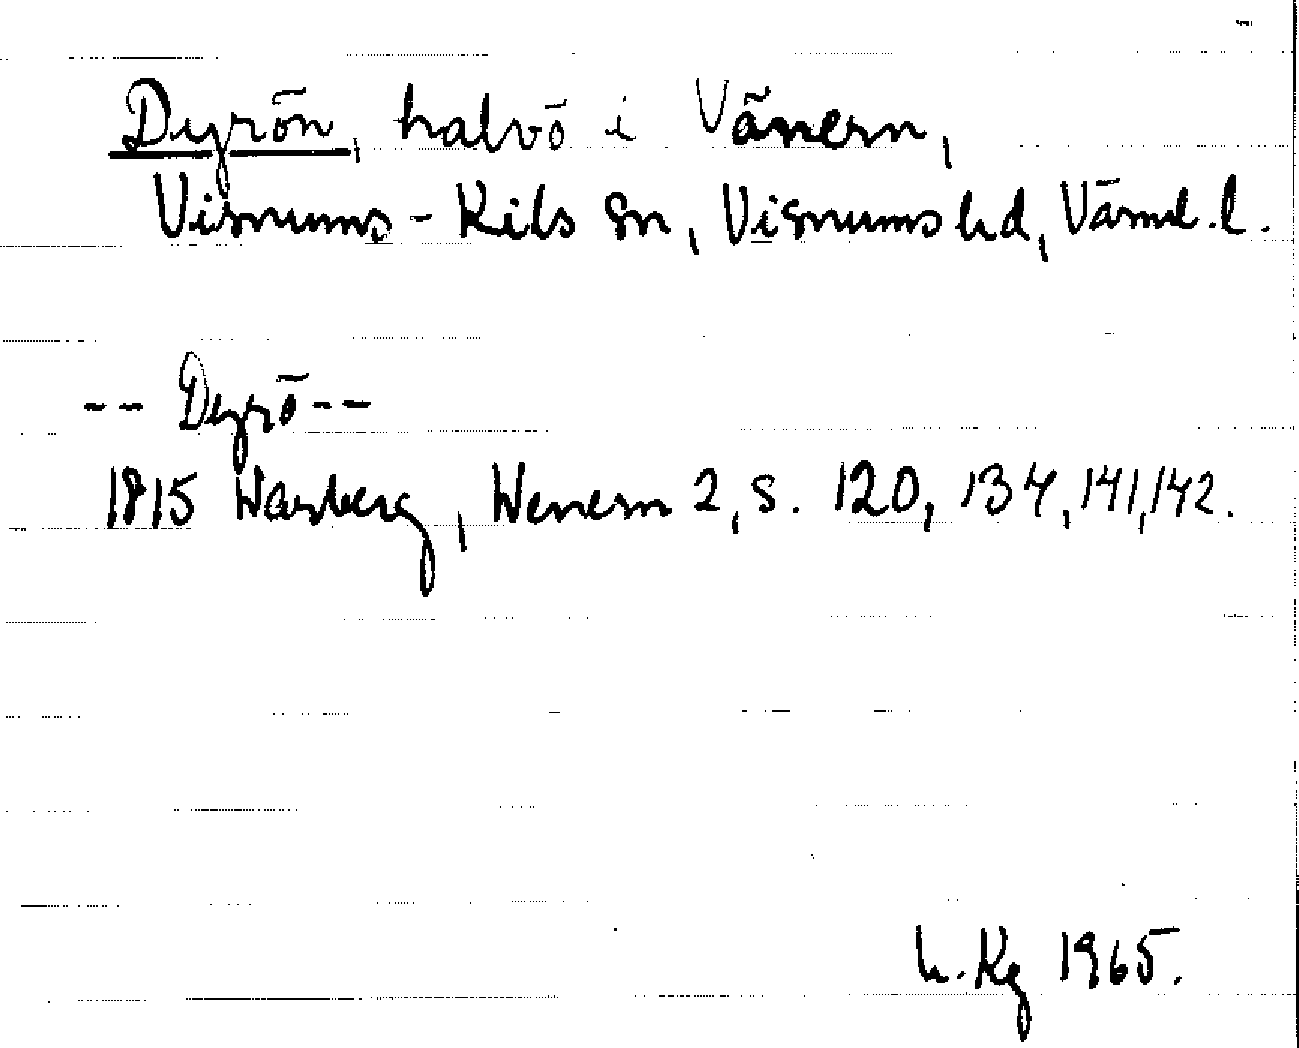 Dyrön, halvö i Vänern,
Visnums-Kils sn, Visnums hd, Värml. l.
-- Dyrö --
1815 Warberg, Wenern 2, s. 120, 134, 141, 142.
h. Kg 1965.